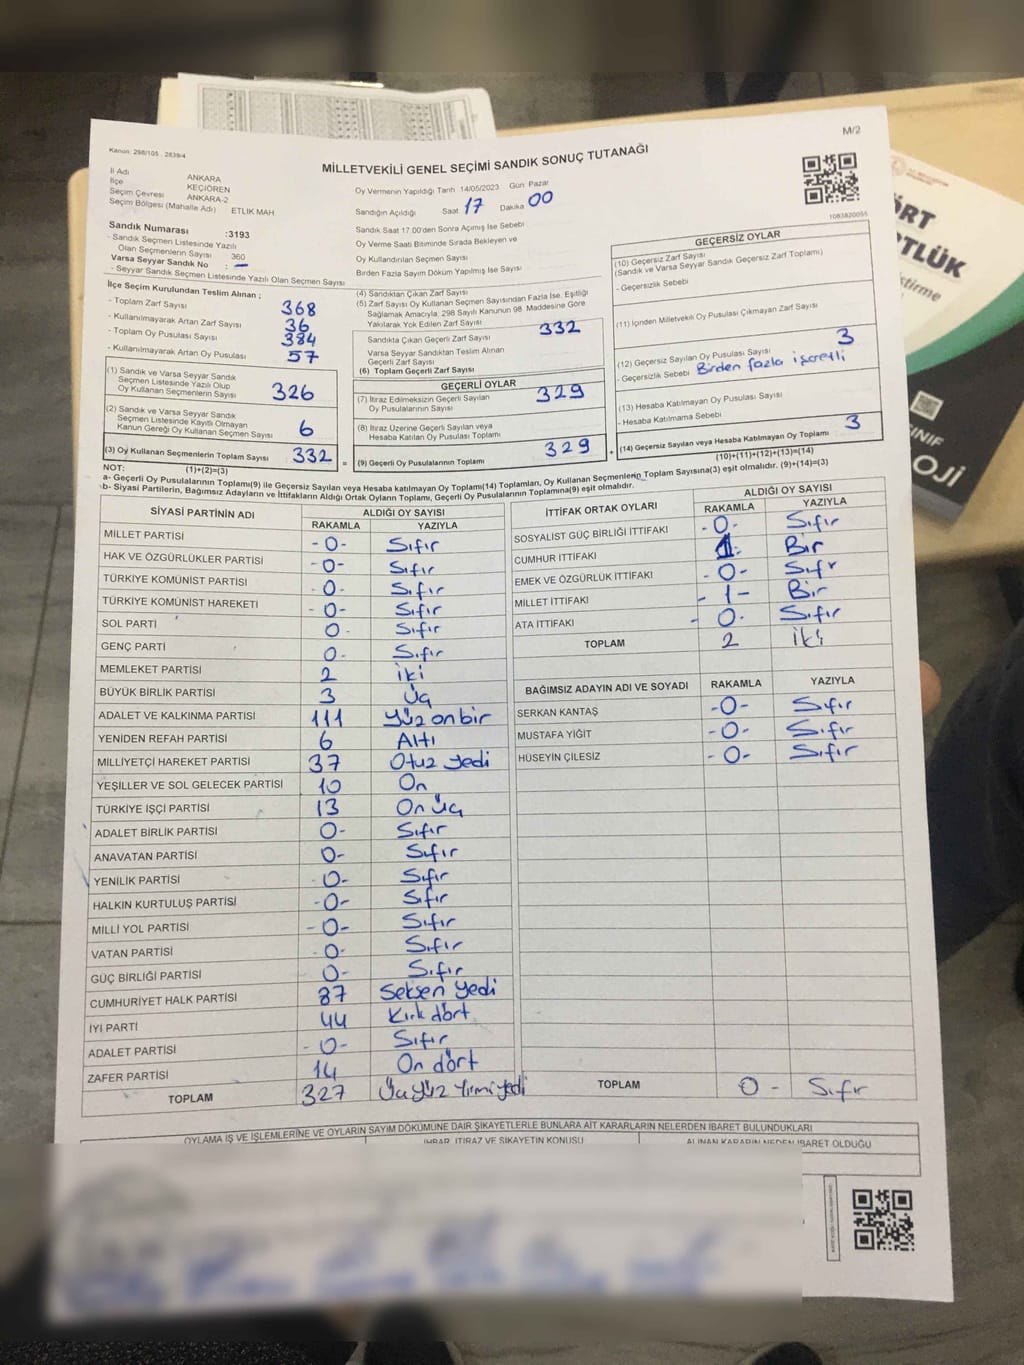 M/2
Kanun: 298/105 2839/4
MİLLETVEKİLİ GENEL SEÇİMİ SANDIK SONUÇ TUTANAĞI
İl Adı ANKARA
İlçe KEÇİÖREN
Seçim Çevresi ANKARA-2
Seçim Bölgesi (Mahalle Adı) ETLIK MAH.
Sandık Numarası :3193
- Sandık Seçmen Listesinde Yazılı
Olan Seçmenlerin Sayısı 360
Varsa Seyyar Sandık No : -
- Seyyar Sandık Seçmen Listesinde Yazılı Olan Seçmen Sayısı
Oy Vermenin Yapıldığı Tarih 14/05/2023 Gün Pazar
Sandığın Açıldığı Saat 17 Dakika 00
Sandık Saat 17.00'den Sonra Açılmış İse Sebebi
Oy Verme Saati Bitiminde Sırada Bekleyen ve
Oy Kullandırılan Seçmen Sayısı
Birden Fazla Sayım Döküm Yapılmış İse Sayısı
1083820055
İlçe Seçim Kurulundan Teslim Alınan ;
- Toplam Zarf Sayısı 368
- Kullanılmayarak Artan Zarf Sayısı 36
- Toplam Oy Pusulası Sayısı 384
- Kullanılmayarak Artan Oy Pusulası 57
(1) Sandık ve Varsa Seyyar Sandık
Seçmen Listesinde Yazılı Olup
Oy Kullanan Seçmenlerin Sayısı 326
(2) Sandık ve Varsa Seyyar Sandık
Seçmen Listesinde Kayıtlı Olmayan
Kanun Gereği Oy Kullanan Seçmen Sayısı 6
(3) Oy Kullanan Seçmenlerin Toplam Sayısı 332 =
(1)+(2)=(3)
(4) Sandıktan Çıkan Zarf Sayısı
(5) Zarf Sayısı Oy Kullanan Seçmen Sayısından Fazla İse, Eşitliği
Sağlamak Amacıyla, 298 Sayılı Kanunun 98. Maddesine Göre
Yakılarak Yok Edilen Zarf Sayısı
Sandıkta Çıkan Geçerli Zarf Sayısı 332
Varsa Seyyar Sandıktan Teslim Alınan
Geçerli Zarf Sayısı
(6) Toplam Geçerli Zarf Sayısı
GEÇERLİ OYLAR
(7) İtiraz Edilmeksizin Geçerli Sayılan
Oy Pusulalarının Sayısı 329
(8) İtiraz Üzerine Geçerli Sayılan veya
Hesaba Katılan Oy Pusulası Toplamı
(9) Geçerli Oy Pusulalarının Toplamı 329 +
GEÇERSİZ OYLAR
(10) Geçersiz Zarf Sayısı
(Sandık ve Varsa Seyyar Sandık Geçersiz Zarf Toplamı)
- Geçersizlik Sebebi
(11) İçinden Milletvekili Oy Pusulası Çıkmayan Zarf Sayısı
(12) Geçersiz Sayılan Oy Pusulası Sayısı 3
- Geçersizlik Sebebi Birden fazla işaretli
(13) Hesaba Katılmayan Oy Pusulası Sayısı
- Hesaba Katılmama Sebebi
(14) Geçersiz Sayılan veya Hesaba Katılmayan Oy Toplamı 3
(10)+(11)+(12)+(13)=(14)
NOT:
a- Geçerli Oy Pusulalarının Toplamı(9) ile Geçersiz Sayılan veya Hesaba katılmayan Oy Toplamı(14) Toplamları, Oy Kullanan Seçmenlerin Toplam Sayısına(3) eşit olmalıdır. (9)+(14)=(3)
b- Siyasi Partilerin, Bağımsız Adayların ve İttifakların Aldığı Ortak Oyların Toplamı, Geçerli Oy Pusulalarının Toplamına(9) eşit olmalıdır.
SİYASİ PARTİNİN ADI ALDIĞI OY SAYISI
RAKAMLA YAZIYLA
MİLLET PARTİSİ -0- Sıfır
HAK VE ÖZGÜRLÜKLER PARTİSİ -0- Sıfır
TÜRKİYE KOMÜNİST PARTİSİ -0- Sıfır
TÜRKİYE KOMÜNİST HAREKETİ -0- Sıfır
SOL PARTİ 0- Sıfır
GENÇ PARTİ 0- Sıfır
MEMLEKET PARTİSİ 2 iki
BÜYÜK BİRLİK PARTİSİ 3 Üç
ADALET VE KALKINMA PARTİSİ 111 yüz on bir
YENİDEN REFAH PARTİSİ 6 Altı
MİLLİYETÇİ HAREKET PARTİSİ 37 Otuz yedi
YEŞİLLER VE SOL GELECEK PARTİSİ 10 On
TÜRKİYE İŞÇİ PARTİSİ 13 On Üç
ADALET BİRLİK PARTİSİ 0- Sıfır
ANAVATAN PARTİSİ 0- Sıfır
YENİLİK PARTİSİ -0- Sıfır
HALKIN KURTULUŞ PARTİSİ -0- Sıfır
MİLLİ YOL PARTİSİ -0- Sıfır
VATAN PARTİSİ -0- Sıfır
GÜÇ BİRLİĞİ PARTİSİ 0- Sıfır
CUMHURİYET HALK PARTİSİ 87 Seksen yedi
İYİ PARTİ 44 Kırk dört
ADALET PARTİSİ -0- Sıfır
ZAFER PARTİSİ 14 On dört
TOPLAM 327 Üç yüz yirmi yedi
İTTİFAK ORTAK OYLARI ALDIĞI OY SAYISI
RAKAMLA YAZIYLA
SOSYALIST GÜÇ BİRLİĞİ İTTİFAKI -0- Sıfır
CUMHUR İTTİFAKI 1- Bir
EMEK VE ÖZGÜRLÜK İTTİFAKI -0- Sıfır
MİLLET İTTİFAKI -1- Bir
ATA İTTİFAKI -0- Sıfır
TOPLAM 2 İki
BAĞIMSIZ ADAYIN ADI VE SOYADI RAKAMLA YAZIYLA
SERKAN KANTAŞ -0- Sıfır
MUSTAFA YİĞİT -0- Sıfır
HÜSEYİN ÇİLESİZ -0- Sıfır
TOPLAM 0- Sıfır
OYLAMA İŞ VE İŞLEMLERİNE VE OYLARIN SAYIM DÖKÜMÜNE DAİR ŞİKAYETLERLE BUNLARA AİT KARARLARIN NELERDEN İBARET BULUNDUKLARI
İHBAR, İTİRAZ VE ŞİKAYETİN KONUSU ALINAN KARARIN NEDEN İBARET OLDUĞU